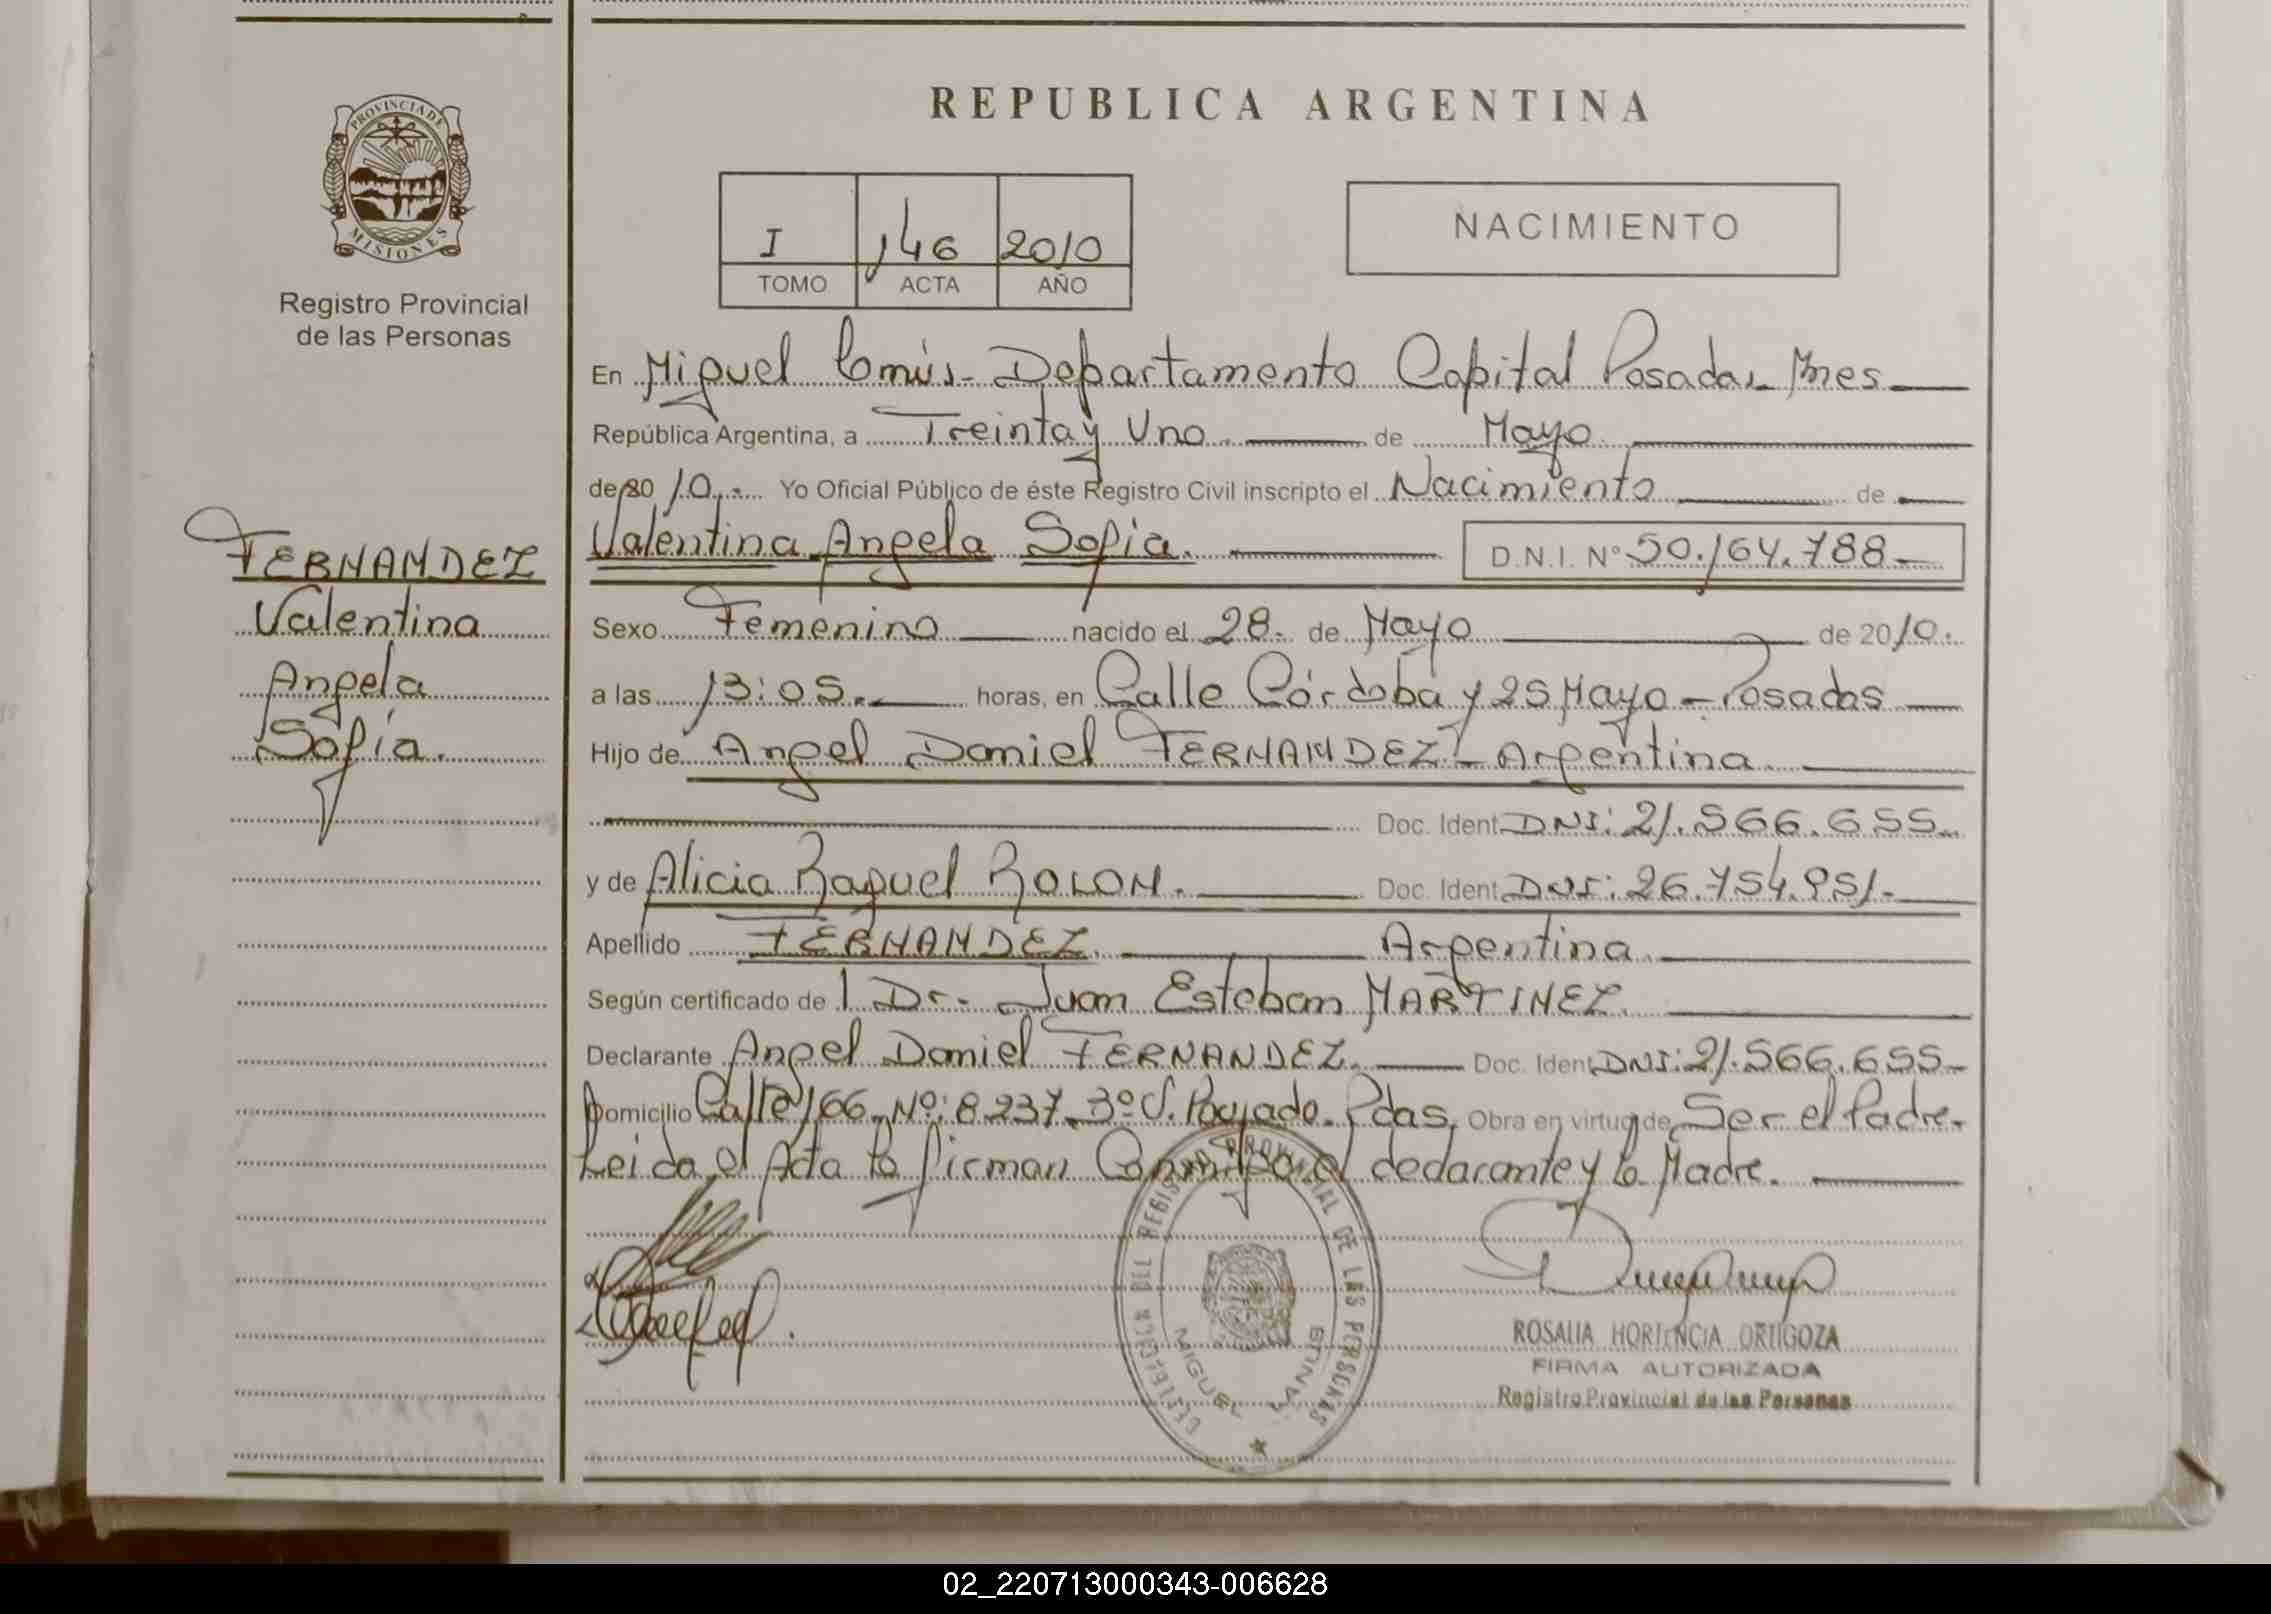 REPUBLICA ARGENTINA
PROVINCIA DE
MISIONES
Registro Provincial
de las Personas
I 146 2010
TOMO ACTA AÑO
NACIMIENTO
En Miguel Lanús - Departamento Capital Posadas Mnes
República Argentina, a Treinta y Uno. de Mayo
de 2010. Yo Oficial Público de éste Registro Civil inscripto el Nacimiento de
Valentina Angela Sofía. D.N.I. Nº 50.164.788
FERNANDEZ
Valentina
Angela
Sofía.
Sexo Femenino nacido el 28. de Mayo de 2010.
a las 13:05. horas, en Calle Córdoba y 25 Mayo - Posadas
Hijo de Angel Daniel FERNANDEZ - Argentina
Doc. Ident. DNI: 21.566.655
y de Alicia Raquel ROLON. Doc. Ident. DNI: 26.754.951.
Apellido FERNANDEZ. Argentina
Según certificado de Dr. Juan Esteban MARTINEZ
Declarante Angel Daniel FERNANDEZ. Doc. Ident. DNI: 21.566.655
Domicilio Calle 166 Nº: 8.237 Pdas. Obra en virtud de Ser el Padre.
Leida el Acta la firman Conmigo el declarante y la Madre.
DELEGACION DEL REGISTRO PROVINCIAL DE LAS PERSONAS
MIGUEL LANUS
ROSALIA HORTENCIA ORTIGOZA
FIRMA AUTORIZADA
Registro Provincial de las Personas
02_220713000343-006628